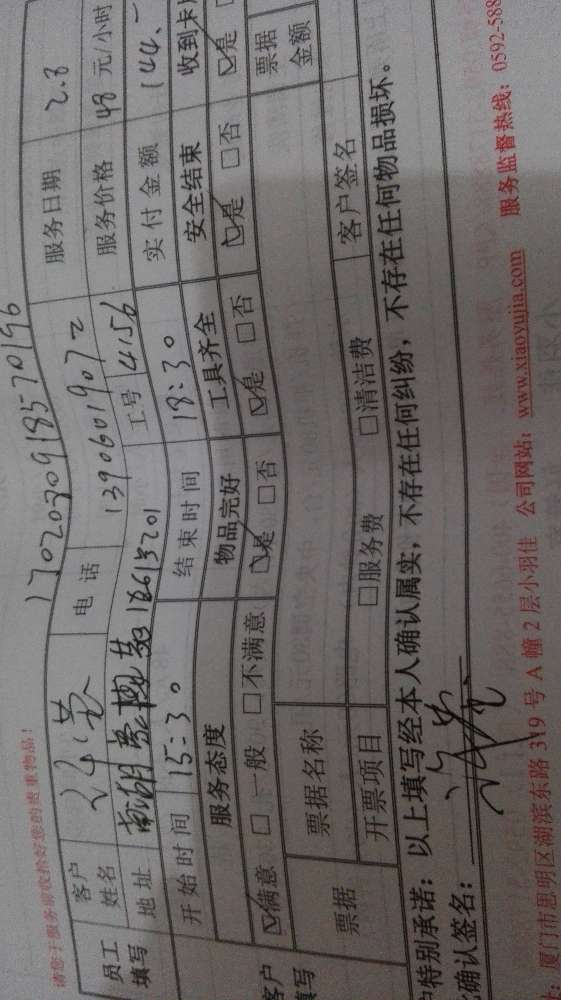 请您于服务前收拾好您的贵重物品！
1702030918570196
员工填写 客户姓名 电话 13906019072 服务日期 2.8
地址 南湖 18613201 工号 4156 服务价格 48 元/小时
开始时间 15:30 结束时间 18:30 实付金额 144.-
服务态度 物品完好 工具齐全 安全结束 收到卡
☑满意 □一般 □不满意 ☑是 □否 ☑是 □否 ☑是 □否 ☑是
客户填写 票据 票据名称 票据金额
开票项目 □服务费 □清洁费 客户签名
特别承诺：以上填写经本人确认属实，不存在任何纠纷，不存在任何物品损坏。
确认签名：
厦门市思明区湖滨东路 319 号 A 幢 2 层小羽佳 公司网站：www.xiaoyujia.com 服务监督热线：0592-588